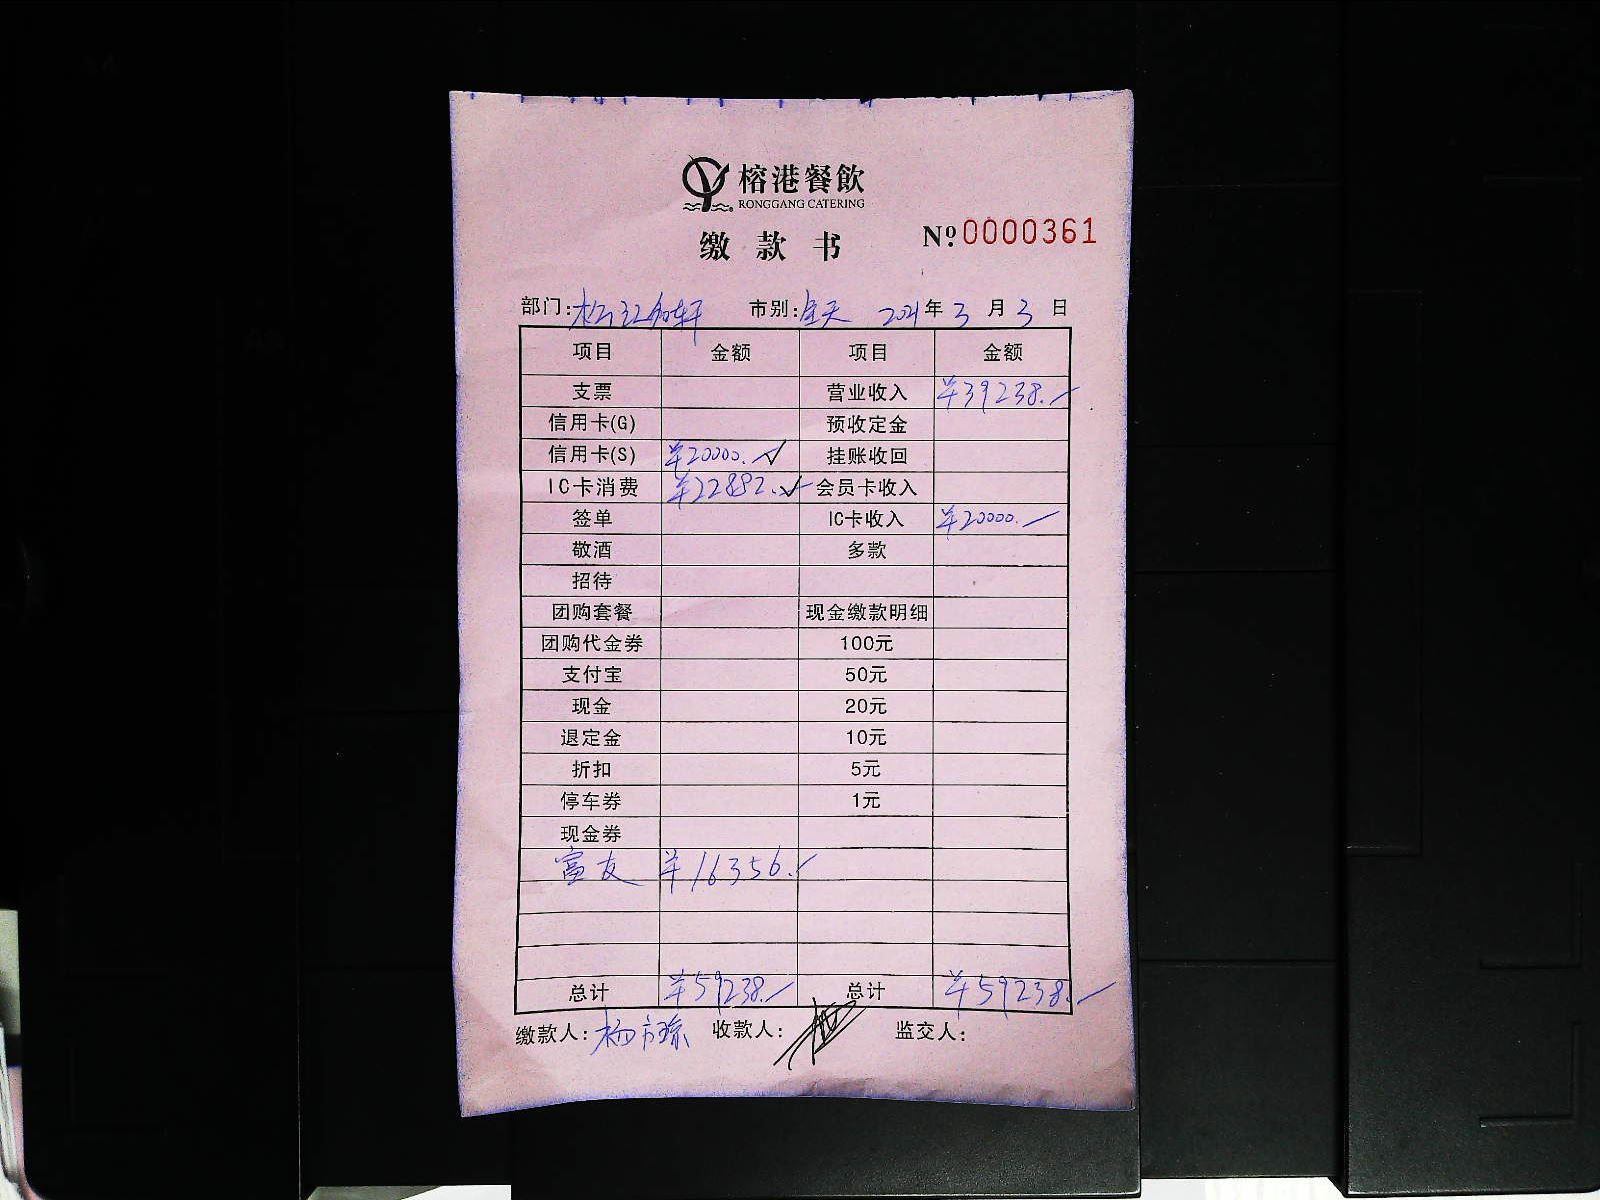 榕港餐飲
RONGGANG CATERING
缴款书 №0000361
部门: 市别:全天 2021年3月3日
项目 金额 项目 金额
支票 营业收入 ¥39238.
信用卡(G) 预收定金
信用卡(S) ¥20000. 挂账收回
IC卡消费 ¥22882. 会员卡收入
签单 IC卡收入 ¥20000.
敬酒 多款
招待
团购套餐 现金缴款明细
团购代金券 100元
支付宝 50元
现金 20元
退定金 10元
折扣 5元
停车券 1元
现金券
富友 ¥16356.
总计 ¥59238. 总计 ¥59238.
缴款人: 收款人: 监交人: